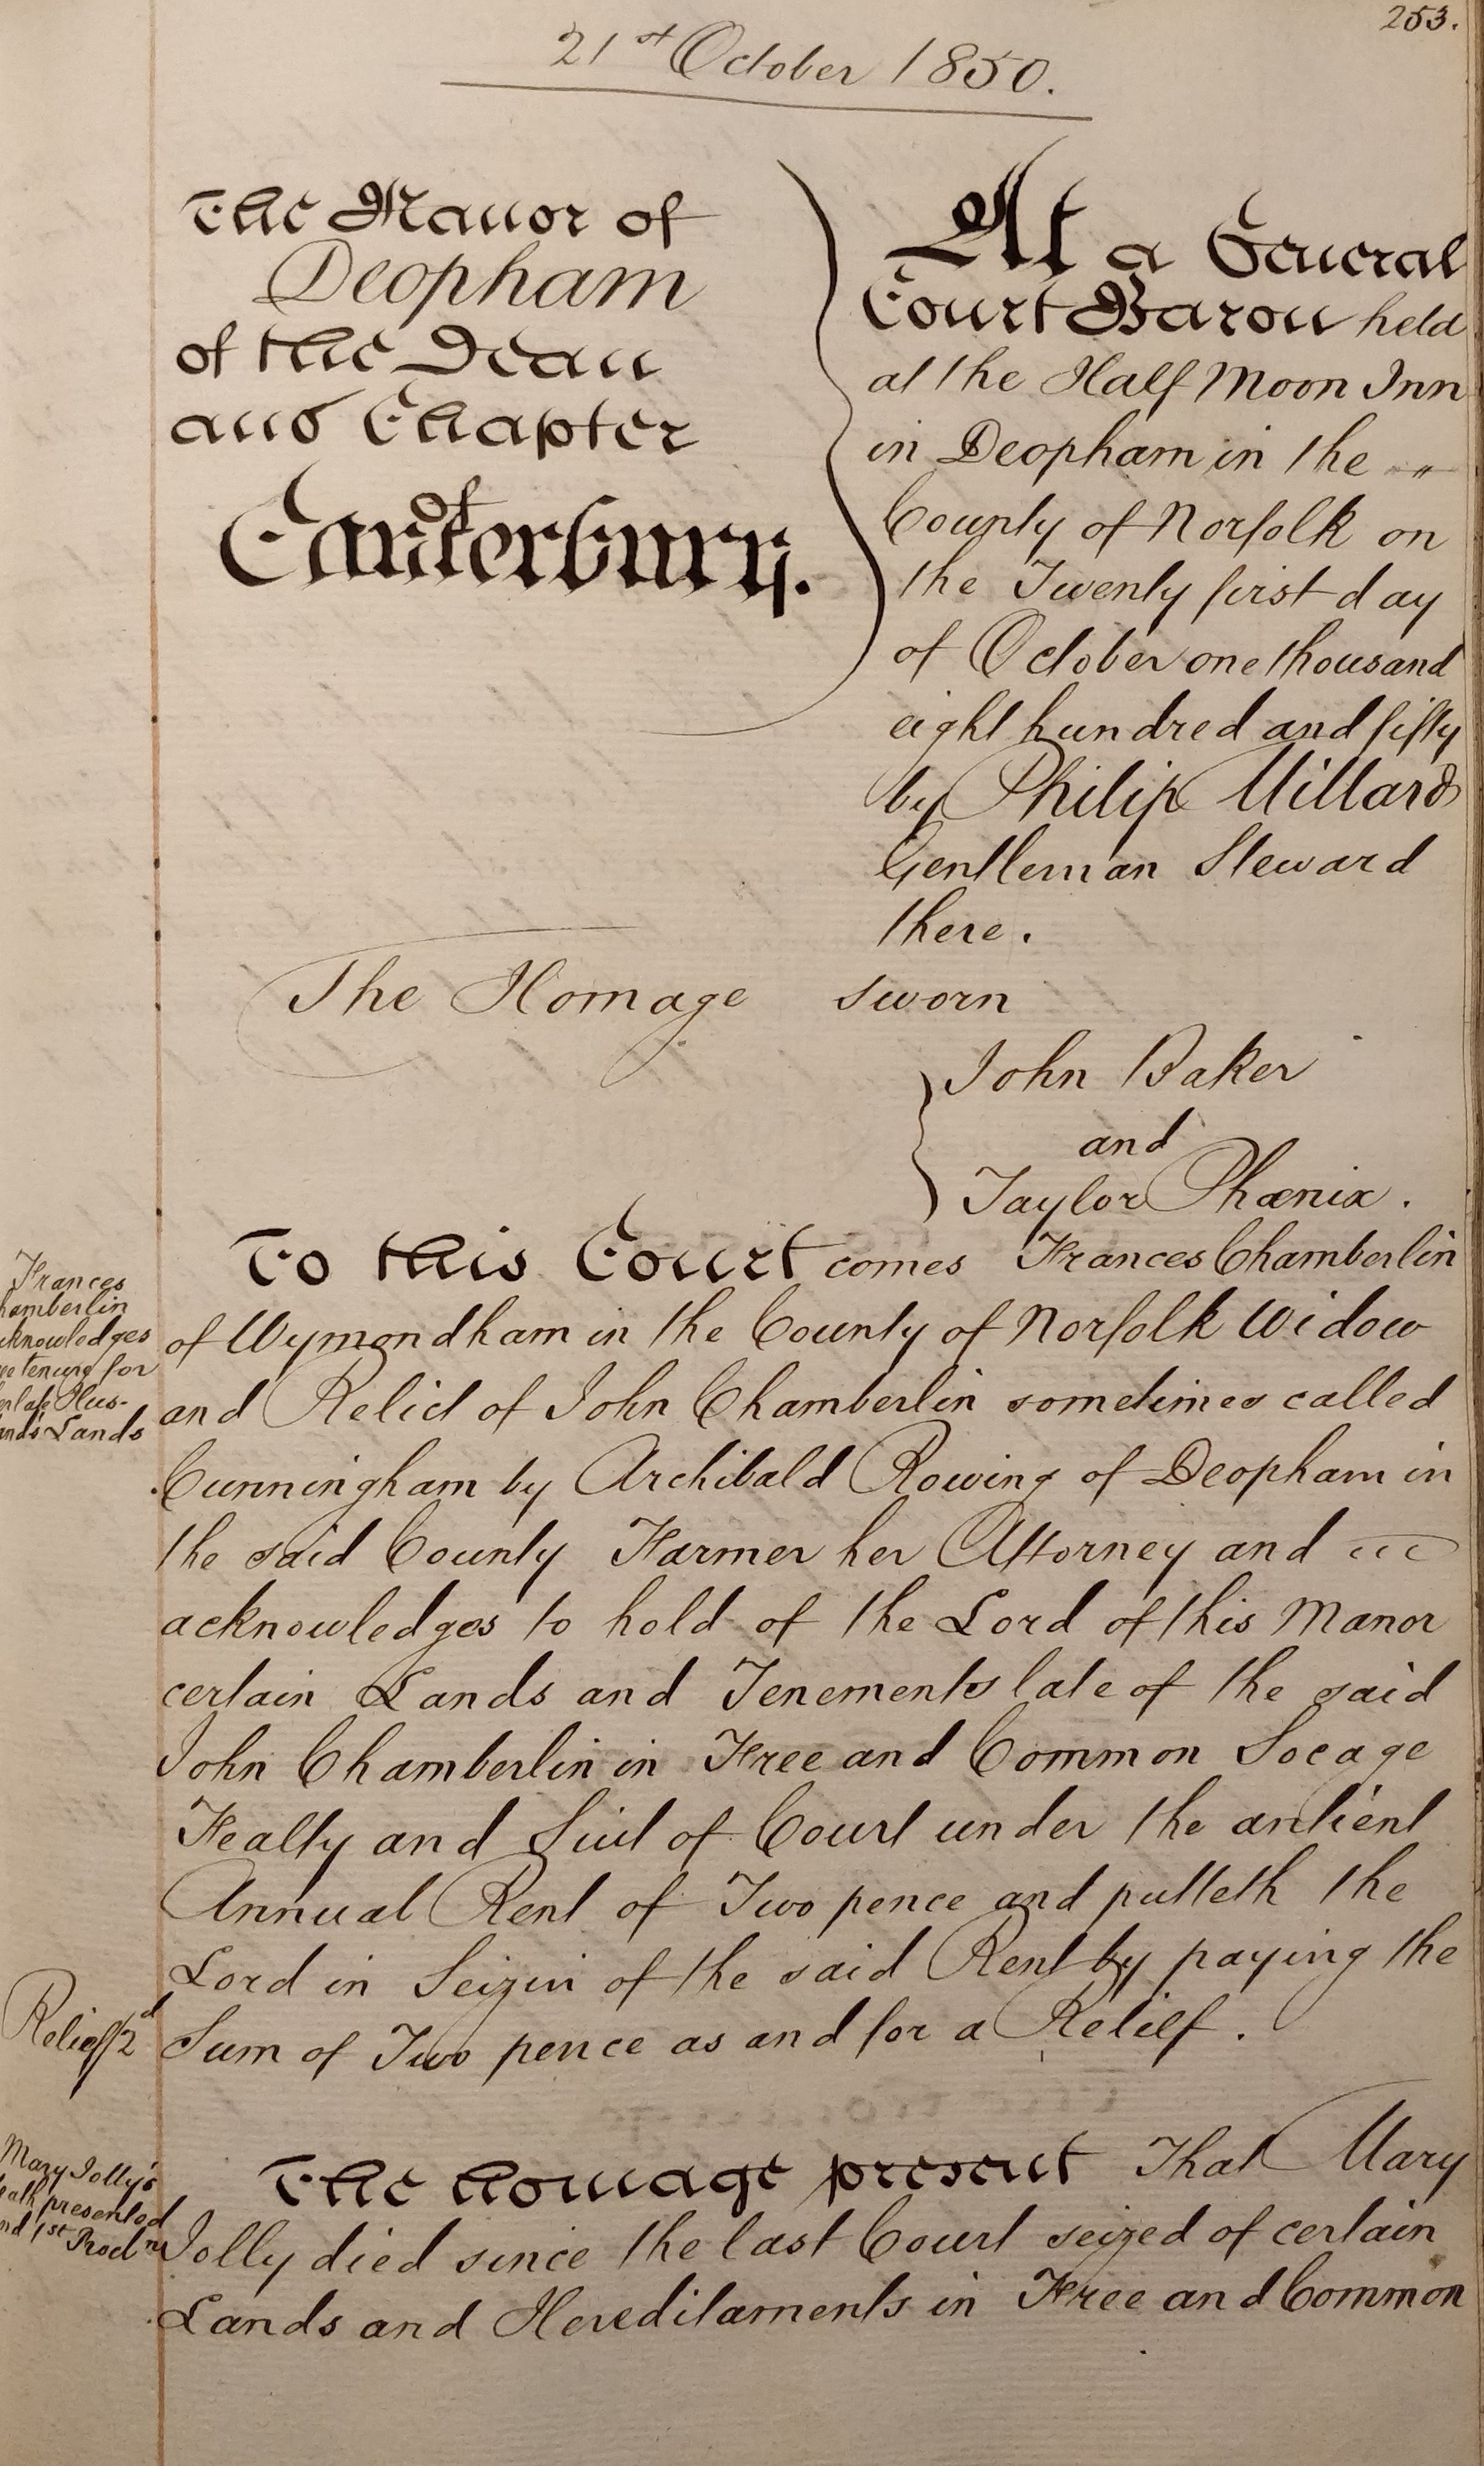 253.
21st October 1850.
The Manor of
Deopham
of the Dean
and Chapter
of
Canterbury.
At a General
Court Baron held
at the Half Moon Inn
in Deopham in the
County of Norfolk on
the Twenty first day
of October one thousand
eight hundred and fifty
by Philip Millard
Gentleman Steward
there.
The Homage sworn
John Baker
and
Taylor Phœnix.
Frances
hamberlin
cknowledges
tenure for
late Hus-
and's Lands
To this Court comes Frances Chamberlin
of Wymondham in the County of Norfolk Widow
and Relict of John Chamberlin sometimes called
Cunningham by Archibald Rowing of Deopham in
the said County Farmer her Attorney and
acknowledges to hold of the Lord of this Manor
certain Lands and Tenements late of the said
John Chamberlin in Free and Common Socage
Fealty and Suit of Court under the antient
Annual Rent of Two pence and putteth the
Lord in Seizin of the said Rent by paying the
Relief 2d
Sum of Two pence as and for a Relief.
Mary Jolly's
eath presented
nd 1st Procln
The homage present That Mary
Jolly died since the last Court seized of certain
Lands and Hereditaments in Free and Common